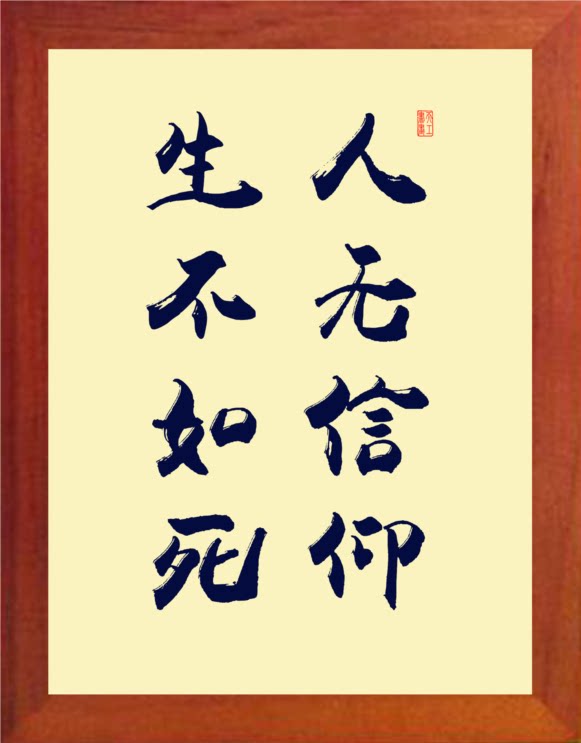 人无信仰
生不如死